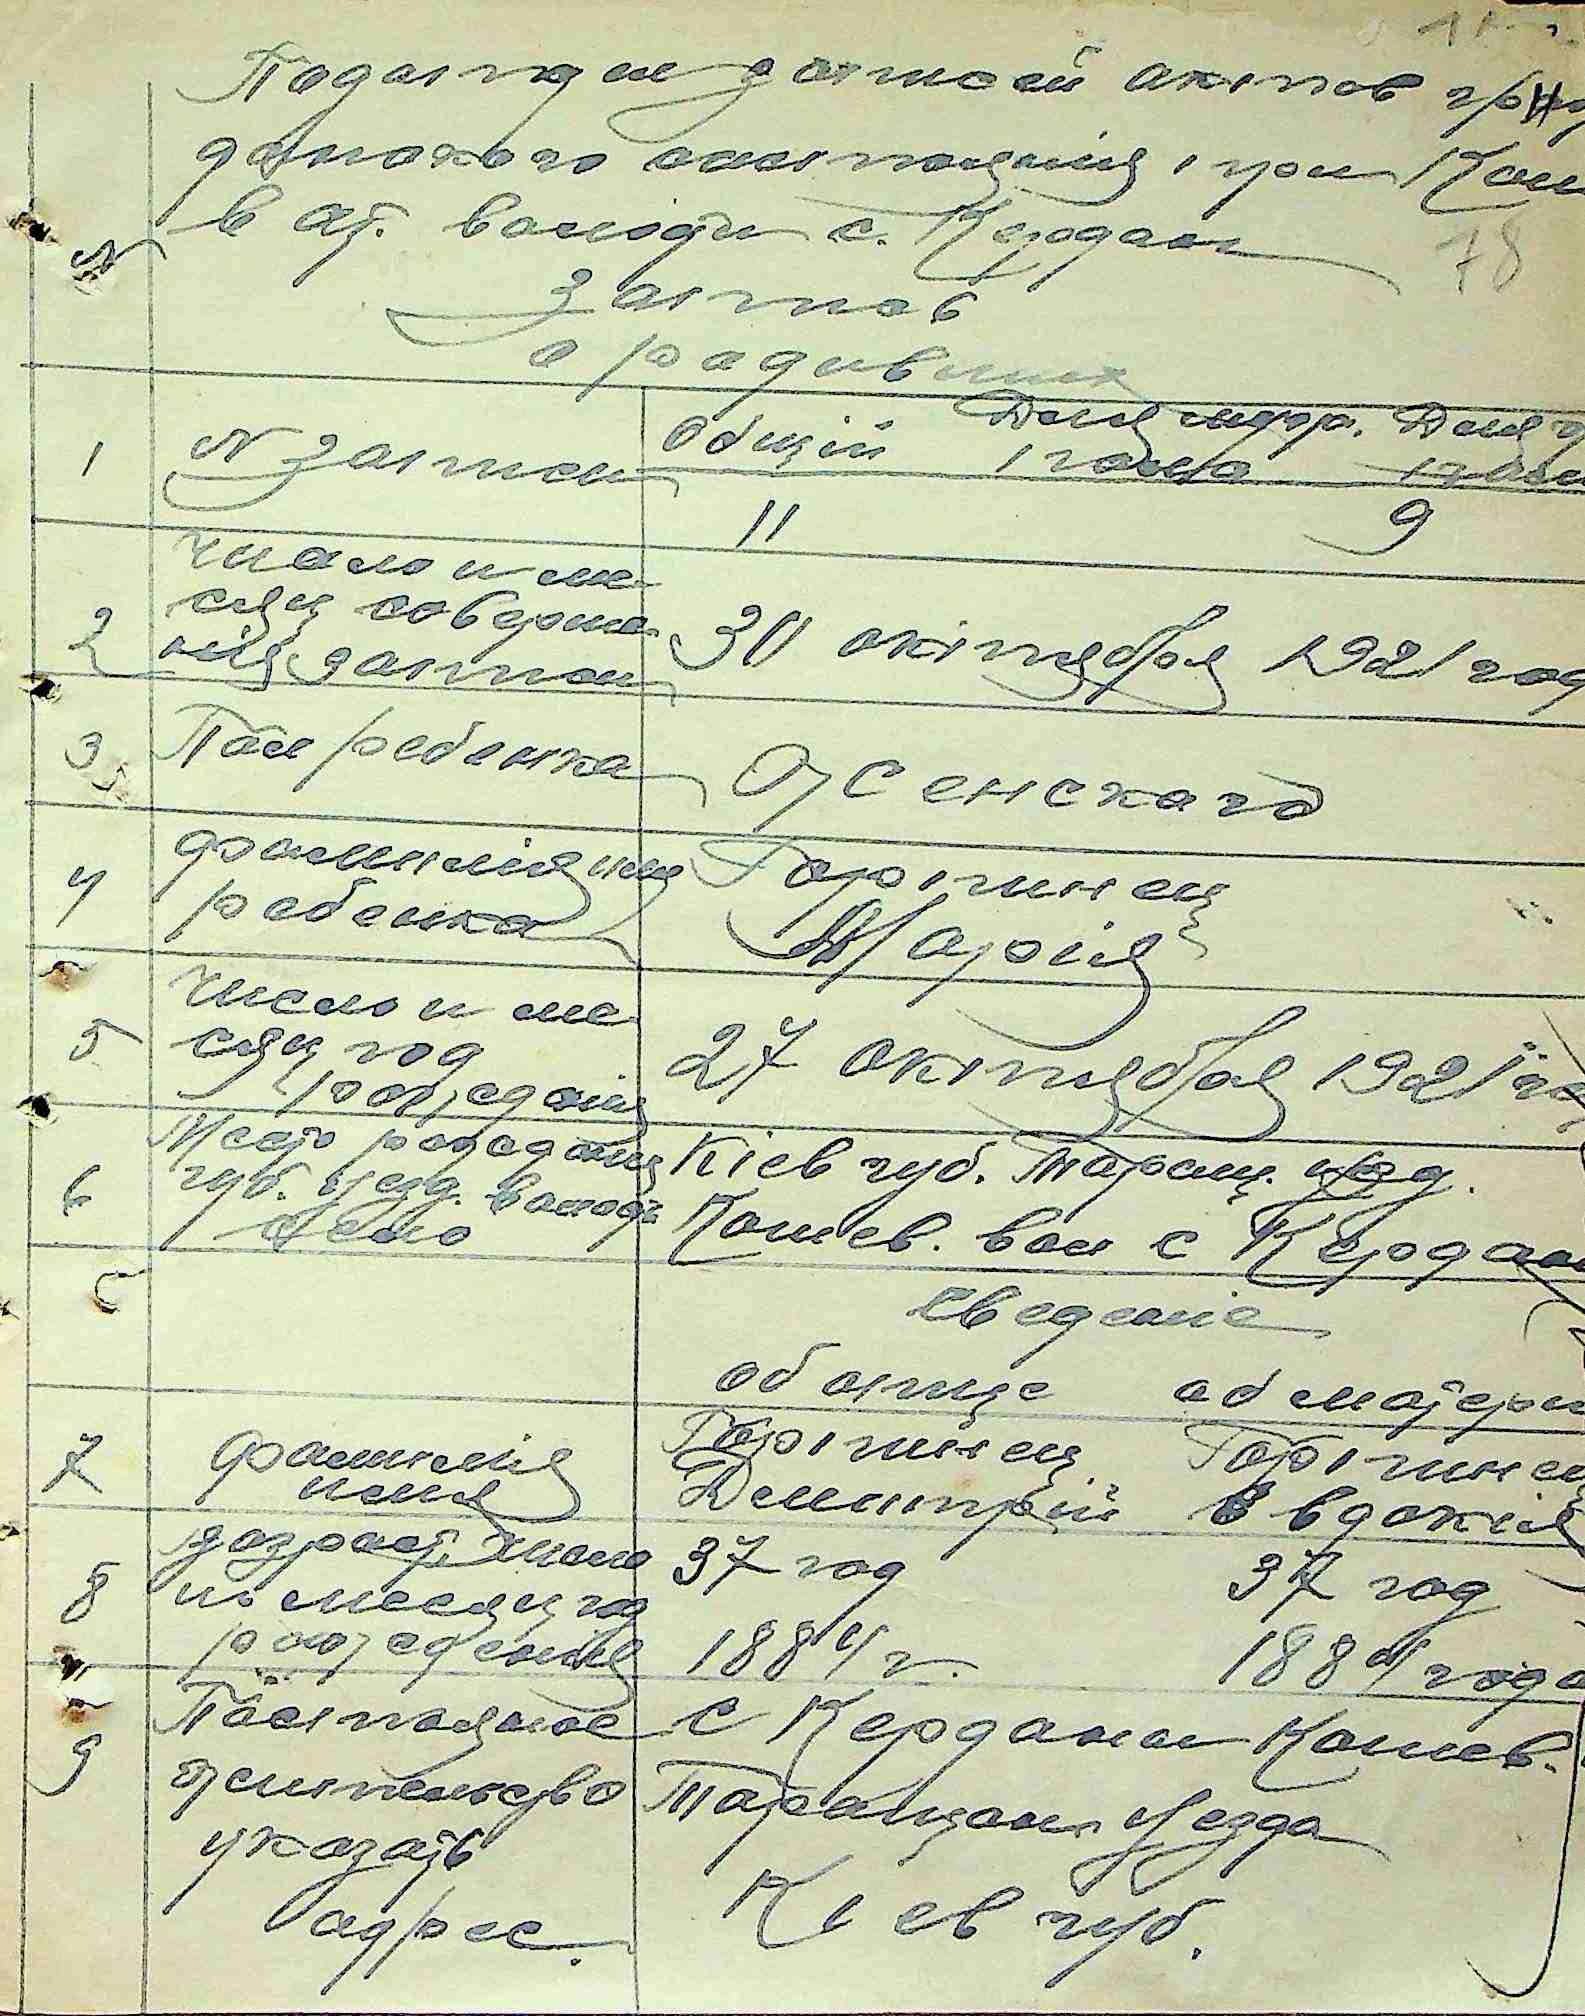 Подотдел записей актов граж
данского состояния, при Кош
в ат. волости с. Кердан
78
Запись
о родивших
№
1 № записи Общій Для мужр. пола Для
11 9
2 Число и ме-
сяц соверше-
нія записи 30 октября 1921 год
3 Пол ребенка Женскаго
4 фамилія имя
ребенка Гортинец
Марія
5 Число и ме-
сяц год
рождения 27 октября 1921 го
6 Место рождения
губ. уезд. волость
село Кіев губ. Таращ. уезд.
Кошев. вол с Кердан
Сведеніе
об отце об матери
7 фамилія
имя Гортинец Гортинец
Дмитрій Евдокія
8 возраст, число
и месяц год
рожденія 37 год 37 год
1884 г. 1884 года
9 Постоянное
жительство
указать
адрес. с Керданы Кошев.
Таращан. уезда
Кіев губ.